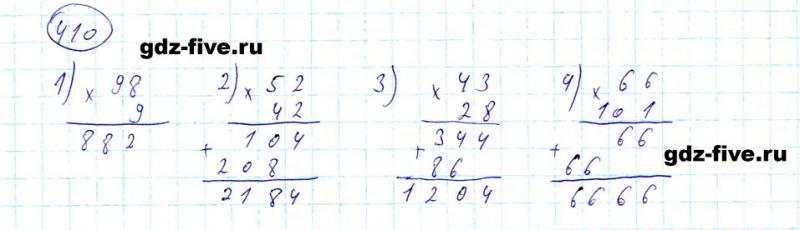 410
gdz-five.ru
1) × 98
9
882
2) × 52
42
+ 104
208
2184
3) × 43
28
+ 344
86
1204
4) × 66
101
+ 66
66
6666
gdz-five.ru